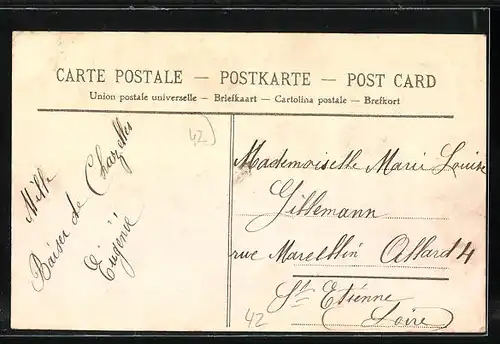 CARTE POSTALE — POSTKARTE — POST CARD
Union postale universelle – Briefkaart – Cartolina postale – Brefkort
42
Mille
Baiser de Chazelles
Eugénie
Mademoiselle Marie Louise
Gillemann
rue Marcellin Allard 4
St Etienne
(Loire)
42